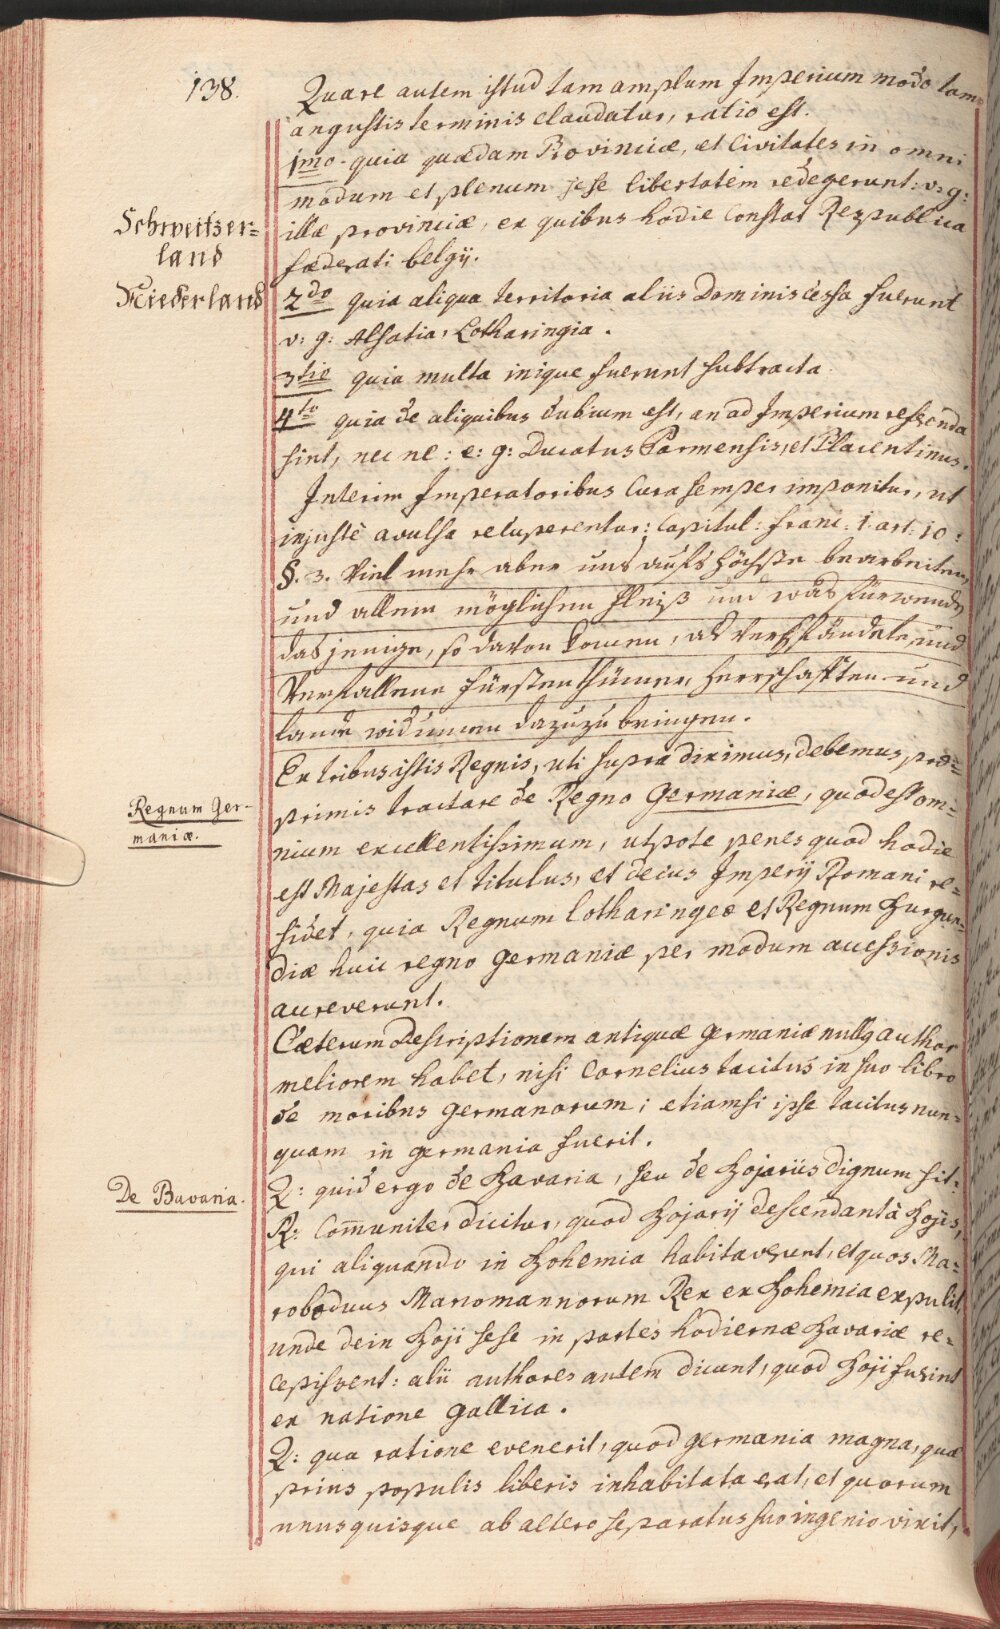 138.
Quare autem istud tam amplum Imperium modo tam
angustis terminis claudatur, ratio est.
1mo. quia quædam Provinciæ, et Civitates in omni
modum et plenum sese libertatem redegerunt: v: g:
illæ provinciæ, ex quibus hodie constat Respublica
fæderati belgÿ.
Schweitzer=
land
Niederland
2do quia aliqua territoria aliis Dominis cessa fuerunt
v: g: Alsatia, Lotharingia.
3tio quia multa inique fuerunt subtracta
4to quia de aliquibus dubium est, an ad Imperium referenda
sint, nec ne: e: g: Ducatus Parmensis, et Placentinus.
Interim Imperatoribus cura semper imponitur, ut
injustè avulsa recuperentur: Capitul: Franc: 1. art: 10:
§. 3. Viel mehr aber uns aufs höchste bearbeiten,
und allem möglichem fleiß und was fürwenden
das jenige, so davon komen, als verpfändete, und
verfallene fürstenthümer, herrschafften und
lande widerumen dazuzu bringen.
Ex tribus istis Regnis, uti supra diximus, debemus præ=
primis tractare de Regno Germaniæ, quod est om=
nium excellentissimum, utpote penes quod hodie
est Majestas et titulus, et decus Imperÿ Romani re=
sidet, quia Regnum Lotharingeæ et Regnum Burgun=
diæ huic regno Germaniæ per modum accessionis
accreverunt.
Regnum Ger-
maniæ.
Cæterum Descriptionem antiquæ Germaniæ nullg author
meliorem habet, nisi Cornelius tacitus in suo libro
de moribus Germanorum; etiamsi ipse tacitus nun=
quam in Germania fuerit.
De Bavaria.
Q: quid ergo de Bavaria, seu de Bojariis dignum sit:
R: Com̄uniter dicitur, quod Bojarÿ descendant à Bojis,
qui aliquando in Bohemia habitaverunt, et quos Ma=
roboduus Marcomannorum Rex ex Bohemia expulit,
unde dein Boji sese in partes hodiernæ Bavariæ re=
cepissent: alii authores autem dicunt, quod Boji fuerint
ex natione Gallica.
Q: qua ratione evenerit, quod Germania magna, quæ
prius populis liberis inhabitata erat, et quorum
unusquisque ab altero separatus suo ingenio vixit,